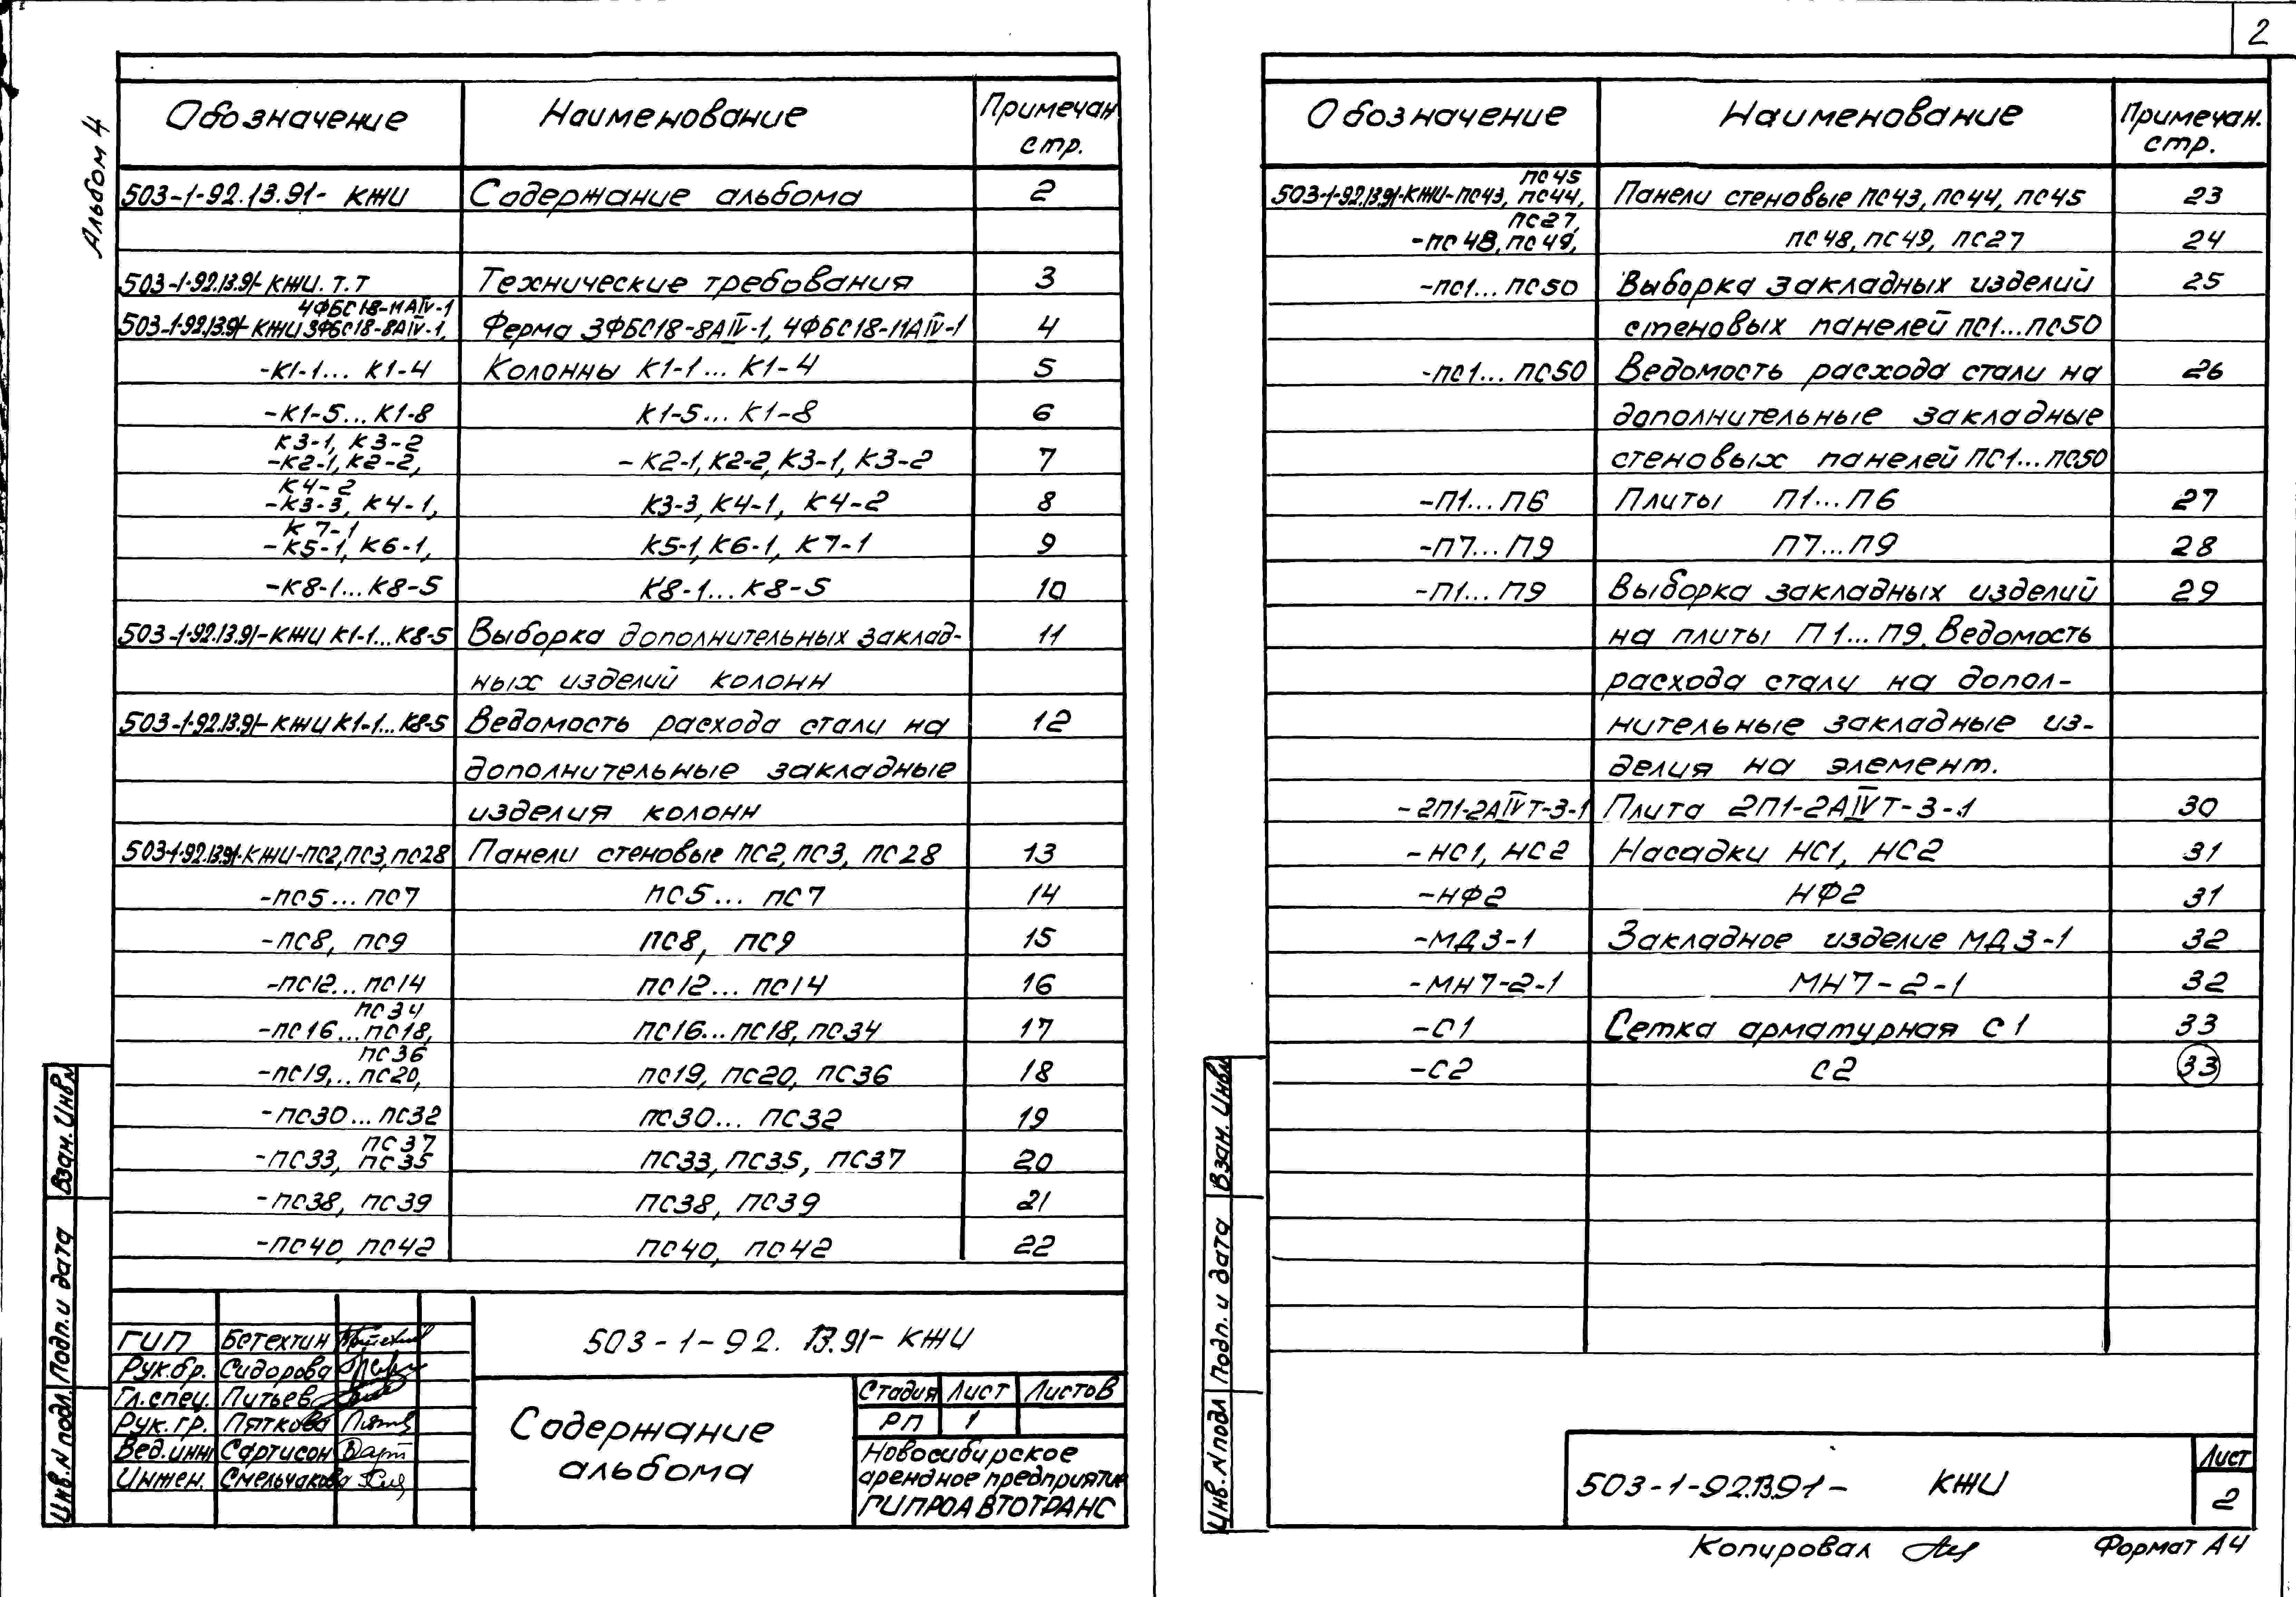 2
Альбом 4
Обозначение Наименование Примечан стр.
503-1-92.13.91- КЖИ Содержание альбома 2
503-1-92.13.91-КЖИ. Т.Т Технические требования 3
4ФБС18-11АIV-1
503-1-92.13.91-КЖИ 3ФБС18-8АIV-1, Ферма 3ФБС18-8АIV-1, 4ФБС18-11АIV-1 4
-К1-1... К1-4 Колонны К1-1... К1-4 5
-К1-5... К1-8 К1-5... К1-8 6
К3-1, К3-2
-К2-1, К2-2, -К2-1, К2-2, К3-1, К3-2 7
К4-2
-К3-3, К4-1, К3-3, К4-1, К4-2 8
К7-1
-К5-1, К6-1, К5-1, К6-1, К7-1 9
-К8-1... К8-5 К8-1... К8-5 10
503-1-92.13.91-КЖИ К1-1... К8-5 Выборка дополнительных заклад- 11
ных изделий колонн
503-1-92.13.91-КЖИ К1-1... К8-5 Ведомость расхода стали на 12
дополнительные закладные
изделия колонн
503-1-92.13.91-КЖИ-ПС2, ПС3, ПС28 Панели стеновые ПС2, ПС3, ПС28 13
-ПС5... ПС7 ПС5... ПС7 14
-ПС8, ПС9 ПС8, ПС9 15
-ПС12... ПС14 ПС12... ПС14 16
ПС34
-ПС16...ПС18, ПС16...ПС18, ПС34 17
ПС36
-ПС19,.. ПС20, ПС19, ПС20, ПС36 18
-ПС30... ПС32 ПС30... ПС32 19
ПС37
-ПС33, ПС35 ПС33, ПС35, ПС37 20
-ПС38, ПС39 ПС38, ПС39 21
-ПС40, ПС42 ПС40, ПС42 22
ГИП Бетехтин
Рук.бр. Сидорова
Гл.спец. Питьев
Рук. гр. Пяткова
Вед.инж Сартисон
Инжен. Смельчакова
503-1-92. 13.91- КЖИ
Содержание
альбома
Стадия Лист Листов
РП 1
Новосибирское
арендное предприятие
ГИПРОАВТОТРАНС
Инв. N подл. Подп. и дата Взам. Инв.N
Обозначение Наименование Примечан. стр.
ПС45
503-1-92.13.91-КЖИ-ПС43, ПС44, Панели стеновые ПС43, ПС44, ПС45 23
ПС27,
-ПС48, ПС49, ПС48, ПС49, ПС27 24
-ПС1... ПС50 Выборка закладных изделий 25
стеновых панелей ПС1...ПС50
-ПС1... ПС50 Ведомость расхода стали на 26
дополнительные закладные
стеновых панелей ПС1...ПС50
-П1... П6 Плиты П1... П6 27
-П7... П9 П7... П9 28
-П1... П9 Выборка закладных изделий 29
на плиты П1... П9. Ведомость
расхода стали на допол-
нительные закладные из-
делия на элемент.
-2П1-2АIVТ-3-1 Плита 2П1-2АIVТ-3-1 30
-НС1, НС2 Насадки НС1, НС2 31
-НФ2 НФ2 31
-МД3-1 Закладное изделие МД3-1 32
-МН7-2-1 МН7-2-1 32
-С1 Сетка арматурная С1 33
-С2 С2 33
Инв. N подл Подп. и дата Взам. Инв.N
503-1-92.13.91- КЖИ
Лист
2
Копировал
Формат А4